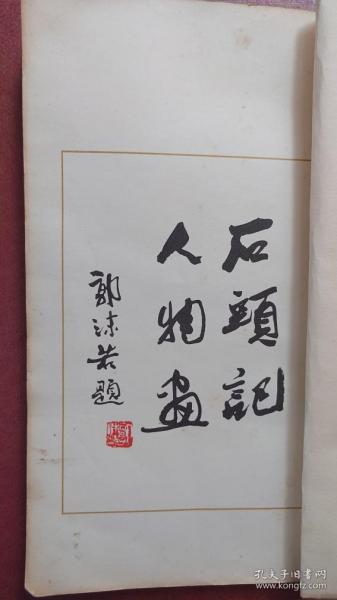 石頭記
人物畫
郭沫若題
孔夫子旧书网
www.kongfz.com